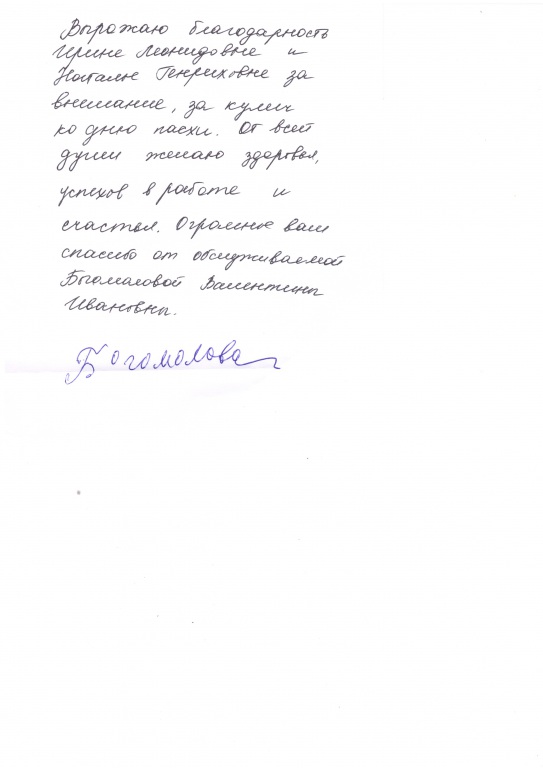 Выражаю благодарность
Ирине Леонидовне и
Наталье Генриховне за
внимание, за кулич
ко дню пасхи. От всей
души желаю здоровья,
успехов в работе и
счастья. Огромное вам
спасибо от обслуживаемой
Богомоловой Валентины
Ивановны.
Богомолова